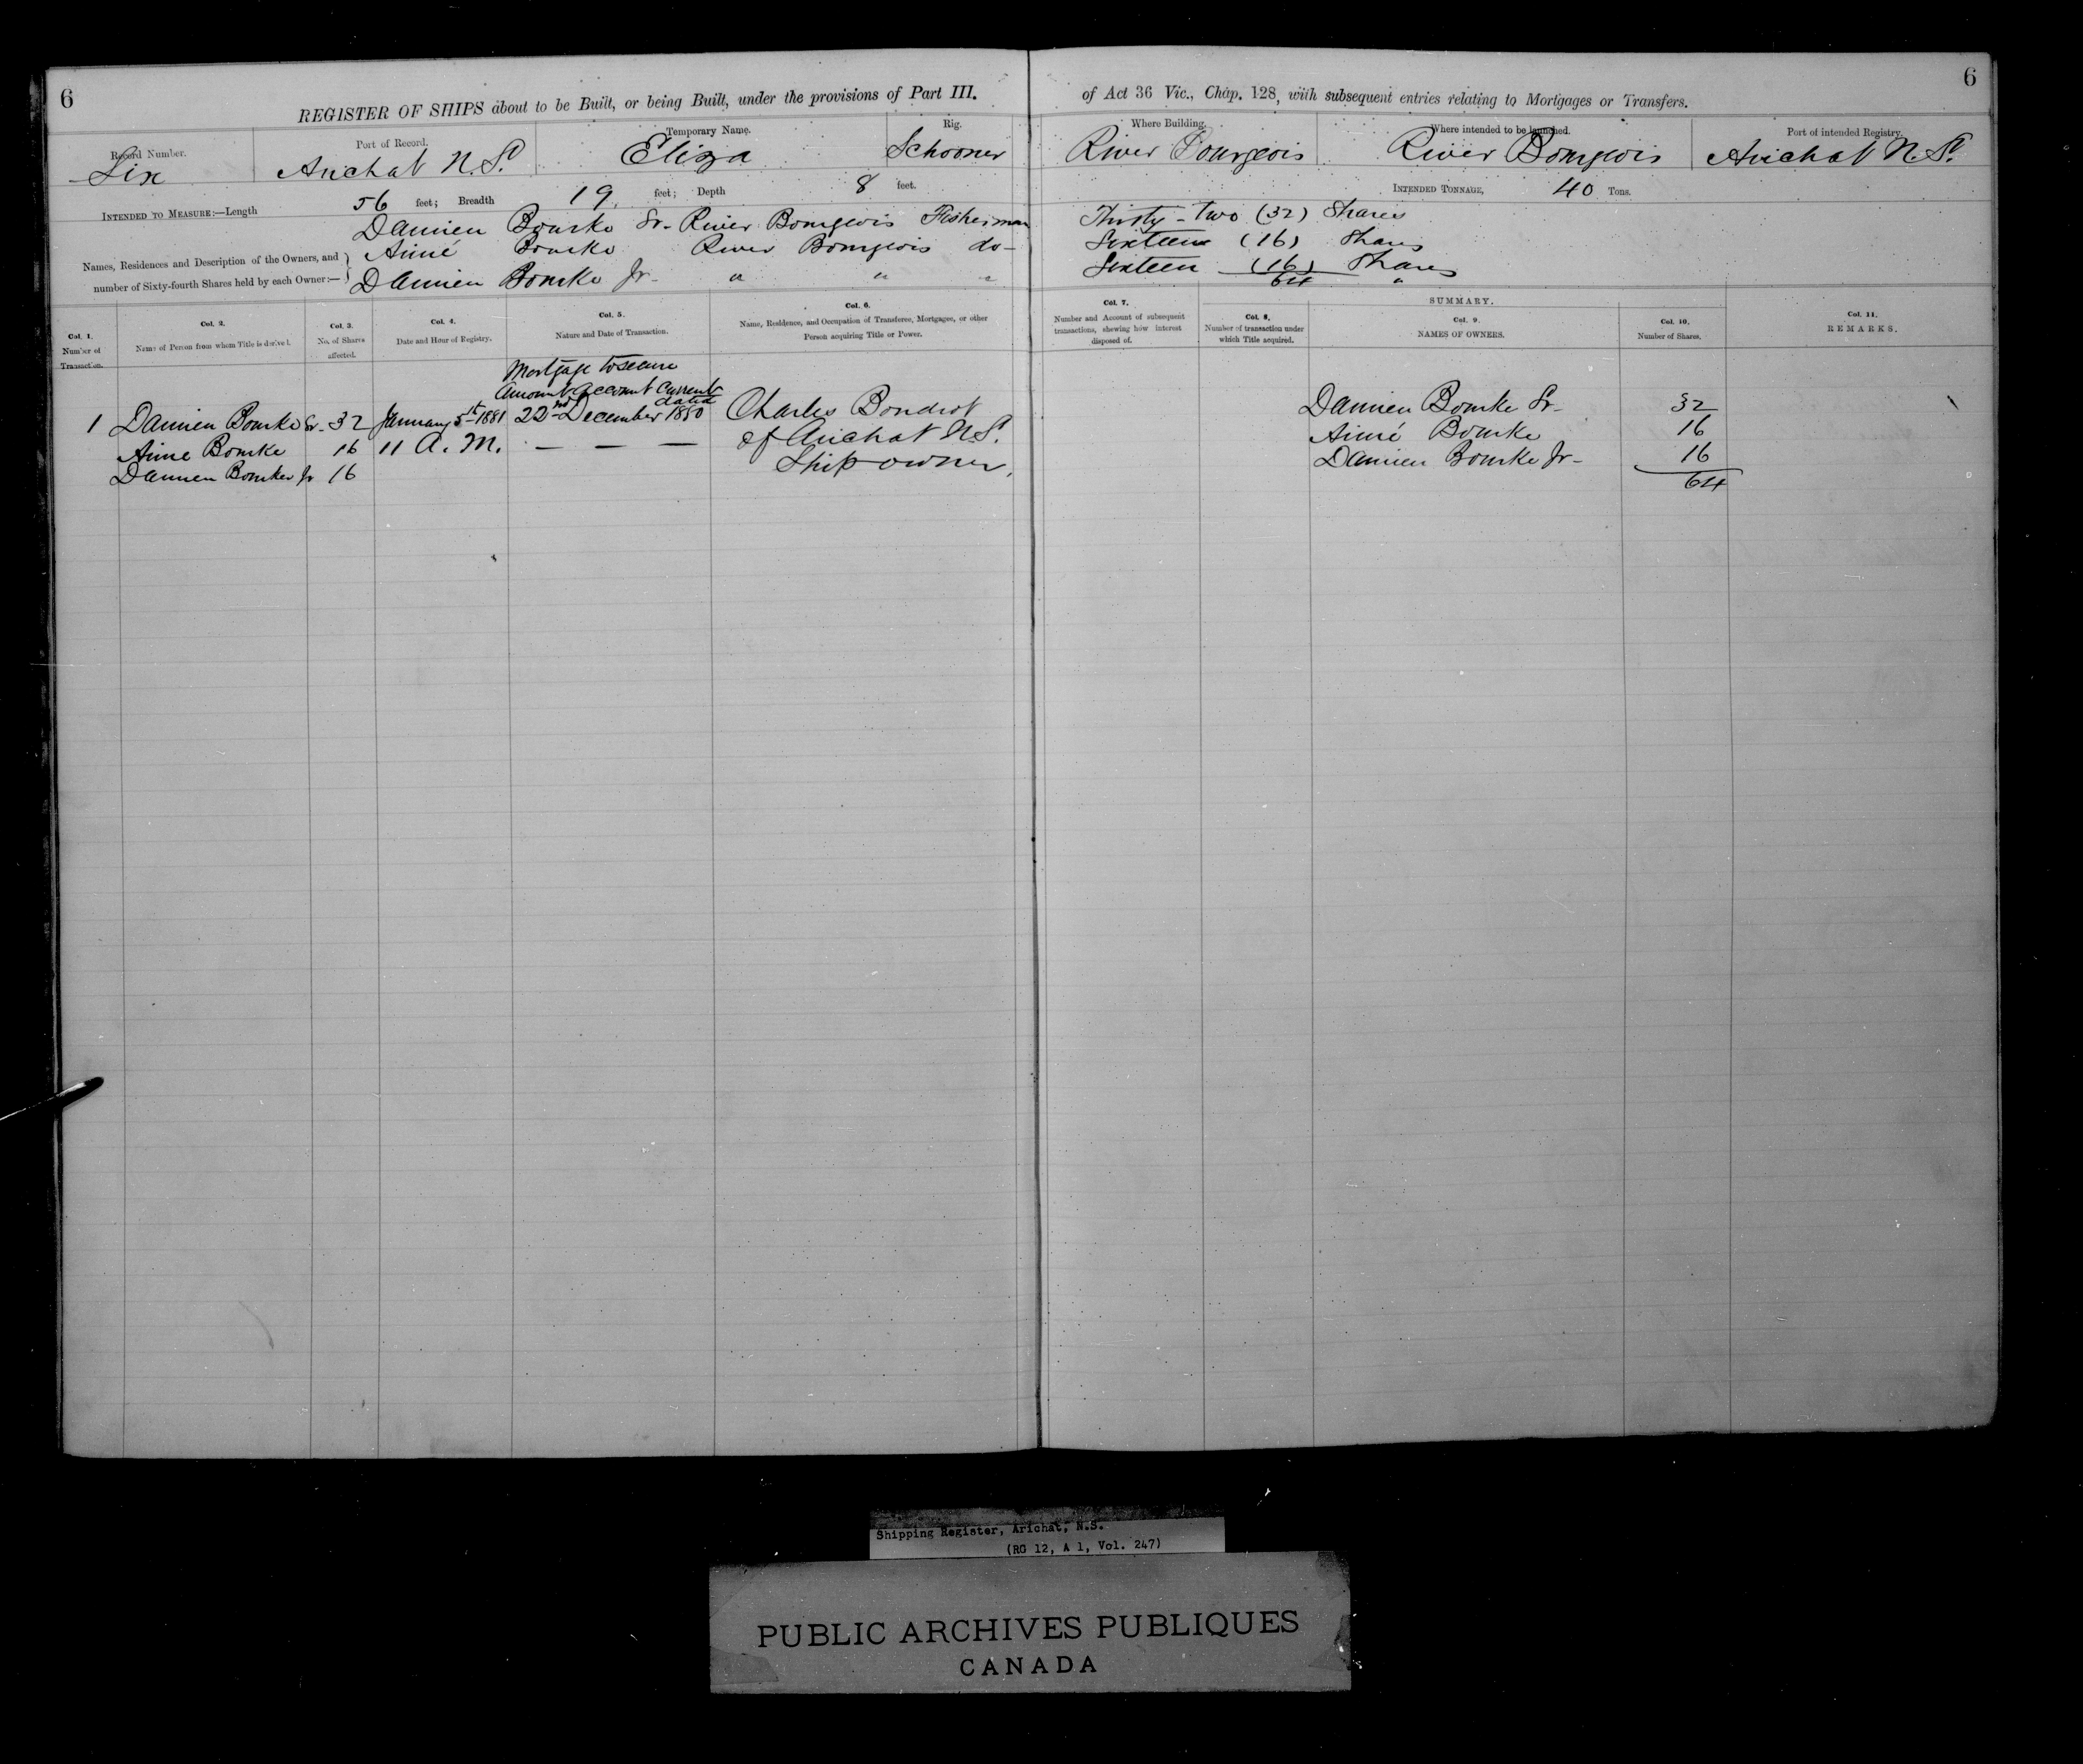 6
REGISTER OF SHIPS about to be Built, or being Built, under the provisions of Part III.
of Act 36 Vic., Chap. 128, with subsequent entries relating to Mortgages or Transfers.
6
Record Number.
Six
Port of Record.
Arichat N.S.
Temporary Name.
Eliza
Rig.
Schooner
Where Building.
River Bourgeois
Where intended to be launched.
River Bourgeois
Port of intended Registry.
Arichat N.S.
INTENDED TO MEASURE:—Length 56 feet; Breadth 19, feet; Depth 8 feet.
INTENDED TONNAGE, 40 Tons.
Names, Residences and Description of the Owners, and
number of Sixty-fourth Shares held by each Owner:—
Damien Bourke Sr. River Bourgeois Fisherman
Thirty-two (32) Shares
Aimé Bourke River Bourgeois do-
Sixteen (16) Shares
Damien Bourke Jr- " " "
Sixteen (16) Shares
64 "
Col. 1.
Number of
Transaction.
Col. 2.
Name of Person from whom Title is derived.
Col. 3.
No. of Shares
affected.
Col. 4.
Date and Hour of Registry.
Col. 5.
Nature and Date of Transaction.
Col. 6.
Name, Residence, and Occupation of Transferee, Mortgagee, or other
Person acquiring Title or Power.
Col. 7.
Number and Account of subsequent
transactions, shewing how interest
disposed of.
SUMMARY.
Col. 8.
Number of transaction under
which Title acquired.
Col. 9.
NAMES OF OWNERS.
Col. 10.
Number of Shares.
Col. 11.
REMARKS.
Mortgage to secure
Amount Account Current
dated
1 Damien Bourke Sr. 32 January 5th 1881 22nd December 1880 Charles Boudrot
Aime Bourke 16 11 A.M. — — — of Arichat N.S.
Damien Bourke Jr 16 Ship owner.
Damien Bourke Sr- 32
Aimé Bourke 16
Damien Bourke Jr- 16
64
Shipping Register, Arichat, N.S.
(RG 12, A 1, Vol. 247)
PUBLIC ARCHIVES PUBLIQUES
CANADA